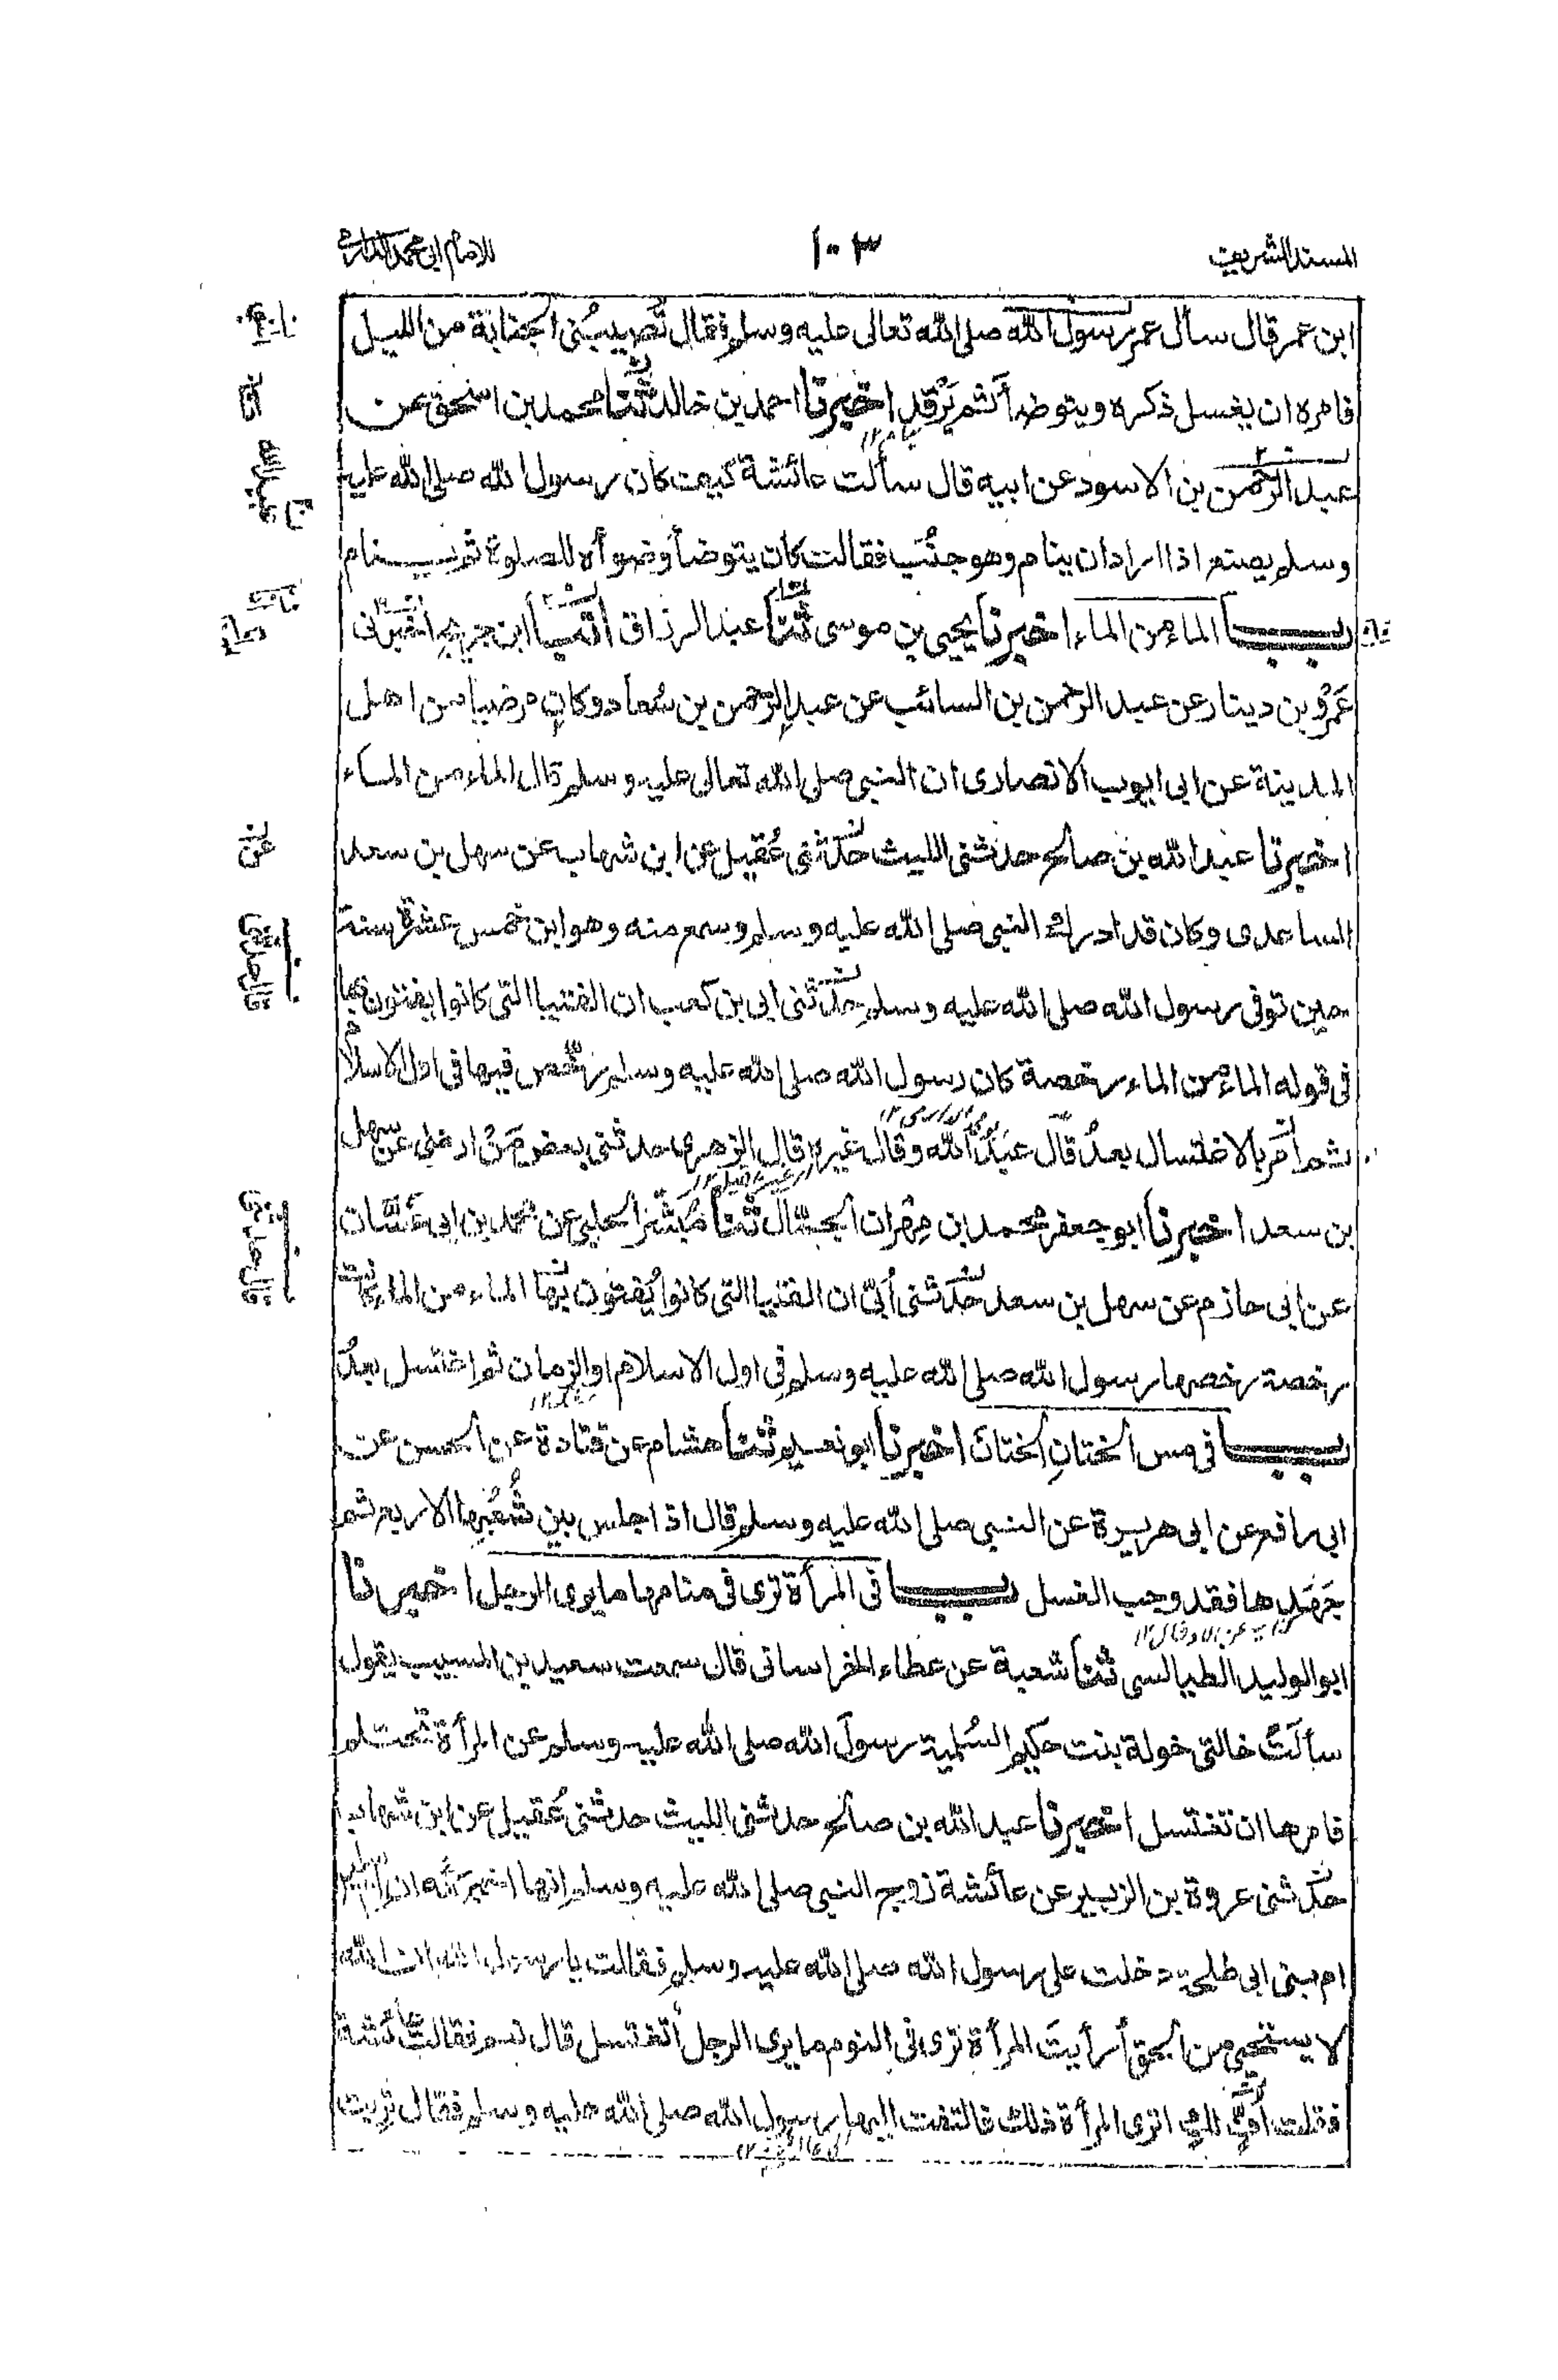 المسند الشريف
١٠٣
للامام ابي محمد الدارمي
ابن عمر قال سأل عمر رسول الله صلى الله تعالى عليه وسلم فقال تُصيبُني الجنابة من الليل
فامره ان يغسل ذكره ويتوضأ ثم يَرْقد اخبرنا احمد بن خالد ثنا محمد بن اسحٰق عن
عبد الرحمن بن الاسود عن ابيه قال سألت عائشة كيف كان رسول الله صلى الله عليه
وسلم يصنع اذا اراد ان ينام وهو جنُب فقالت كان يتوضأ وضوأه للصلوة ثم ينام
باب الماء من الماء اخبرنا يحيى بن موسى ثنا عبد الرزاق انبأ ابن جريج اخبرني
عَمرو بن دينار عن عبد الرحمن بن السائب عن عبد الرحمن بن سُعاد وكان مرضيا من اهل
المدينة عن ابي ايوب الانصاري ان النبي صلى الله تعالى عليه وسلم قال الماء من الماء
اخبرنا عبد الله بن صالح حدثني الليث حدثني عُقيل عن ابن شهاب عن سهل بن سعد
الساعدي وكان قد ادرك النبي صلى الله عليه وسلم وسمع منه وهو ابن خمس عشرة سنة
حين توفي رسول الله صلى الله عليه وسلم حدثني ابي بن كعب ان الفتيا التي كانوا يفتون بها
في قوله الماء من الماء رخصة كان رسول الله صلى الله عليه وسلم رخص فيها في اول الاسلام
ثم أمر بالاغتسال بعدُ قال عبد الله وقال غيره قال الزهري حدثني بعض مَنْ ارضى عن سهل
بن سعد اخبرنا ابو جعفر محمد بن مِهْران الجمّال ثنا مُبَشّر الحلبي عن محمد بن ابي غسّان
عن ابي حازم عن سهل بن سعد حدثني أُبيّ ان الفتيا التي كانوا يُفتون بها الماء من الماء كانت
رخصة رخصها رسول الله صلى الله عليه وسلم في اول الاسلام او الزمان ثم اغتسل بعدُ
باب في مس الختانِ الختانَ اخبرنا ابو نعيم ثنا هشام عن قتادة عن الحسن عن
ابي رافع عن ابي هريرة عن النبي صلى الله عليه وسلم قال اذا جلس بين شُعَبِها الاربع ثم
جَهَدها فقد وجب الغسل باب في المرأة ترى في منامها ما يرى الرجل اخبرنا
ابو الوليد الطيالسي ثنا شعبة عن عطاء الخراساني قال سمعت سعيد بن المسيب يقول
سألَتْ خالتي خولة بنت حكيم السُلمية رسولَ الله صلى الله عليه وسلم عن المرأة تحتلم
فامرها ان تغتسل اخبرنا عبد الله بن صالح حدثني الليث حدثني عُقيل عن ابن شهاب
حدثني عروة بن الزبير عن عائشة زوج النبي صلى الله عليه وسلم انها اخبرته ان ام سليم
ام بني ابي طلحة دخلت على رسول الله صلى الله عليه وسلم فقالت يا رسول الله ان الله
لا يستحيي من الحق أرأيتَ المرأة ترى في النوم ما يرى الرجل أتغتسل قال نعم فقالت عائشة
فقلت أُفٍّ لكِ اترى المرأة ذلك فالتفت اليها رسول الله صلى الله عليه وسلم فقال تربت